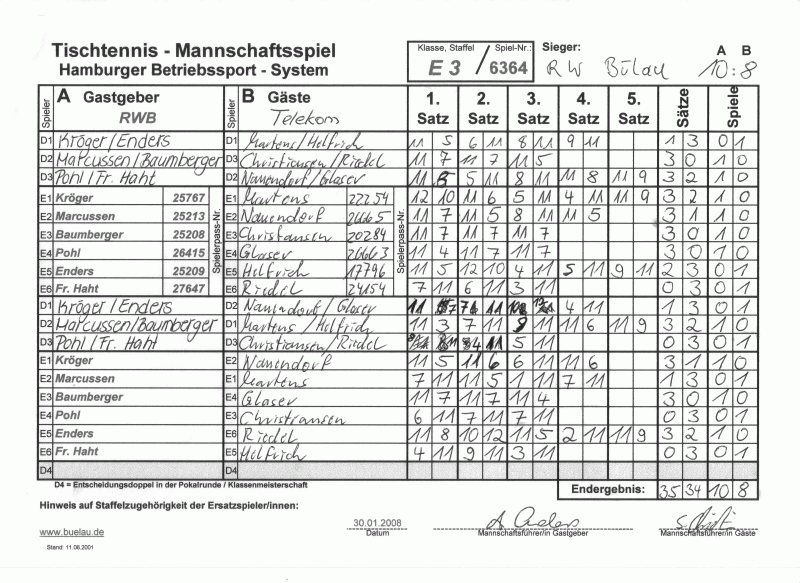 Tischtennis - Mannschaftsspiel
Hamburger Betriebssport - System
Klasse, Staffel Spiel-Nr.:
E 3 / 6364
Sieger: A B
RW Bülau 10:8
Spieler A Gastgeber Spieler B Gäste 1. 2. 3. 4. 5. Sätze Spiele
RWB Telekom Satz Satz Satz Satz Satz
D1 Kröger/Enders D1 Martens/Helfrich 11 5 6 11 8 11 9 11 1 3 0 1
D2 Marcussen/Baumberger D3 Christiansen/Riedel 11 7 11 7 11 5 3 0 1 0
D3 Pohl/Fr. Haht D2 Nauendorf/Glaser 11 8 5 11 8 11 11 8 11 9 3 2 1 0
Spielerpass-Nr. Spielerpass-Nr.
E1 Kröger 25767 E1 Martens 22254 12 10 11 6 5 11 4 11 11 9 3 2 1 0
E2 Marcussen 25213 E2 Nauendorf 26665 11 7 11 5 8 11 11 5 3 1 1 0
E3 Baumberger 25208 E3 Christansen 20284 11 7 11 7 11 7 3 0 1 0
E4 Pohl 26415 E4 Glaser 26663 11 4 11 7 11 7 3 0 1 0
E5 Enders 25209 E5 Helfrich 17796 11 5 12 10 4 11 5 11 9 11 2 3 0 1
E6 Fr. Haht 27647 E6 Riedel 24154 7 11 6 11 3 11 0 3 0 1
D1 Kröger/Enders D2 Nauendorf/Glaser 11 7 11 4 11 1 3 0 1
D2 Marcussen/Baumberger D1 Martens/Helfrich 11 3 7 11 9 11 11 6 11 9 3 2 1 0
D3 Pohl/Fr. Haht D3 Christiansen/Riedel 11 4 11 5 11 0 3 0 1
E1 Kröger E2 Nauendorf 11 5 11 6 6 11 11 6 3 1 1 0
E2 Marcussen E1 Martens 7 11 11 5 1 11 7 11 1 3 0 1
E3 Baumberger E4 Glaser 11 7 11 7 11 4 3 0 1 0
E4 Pohl E3 Christransen 6 11 7 11 7 11 0 3 0 1
E5 Enders E6 Riedel 11 8 10 12 11 5 2 11 11 9 3 2 1 0
E6 Fr. Haht E5 Helfrich 4 11 9 11 3 11 0 3 0 1
D4 D4
D4 = Entscheidungsdoppel in der Pokalrunde / Klassenmeisterschaft
Endergebnis: 35 34 10 8
Hinweis auf Staffelzugehörigkeit der Ersatzspieler/innen:
www.buelau.de 30.01.2008
Datum Mannschaftsführer/in Gastgeber Mannschaftsführer/in Gäste
Stand: 11.06.2001